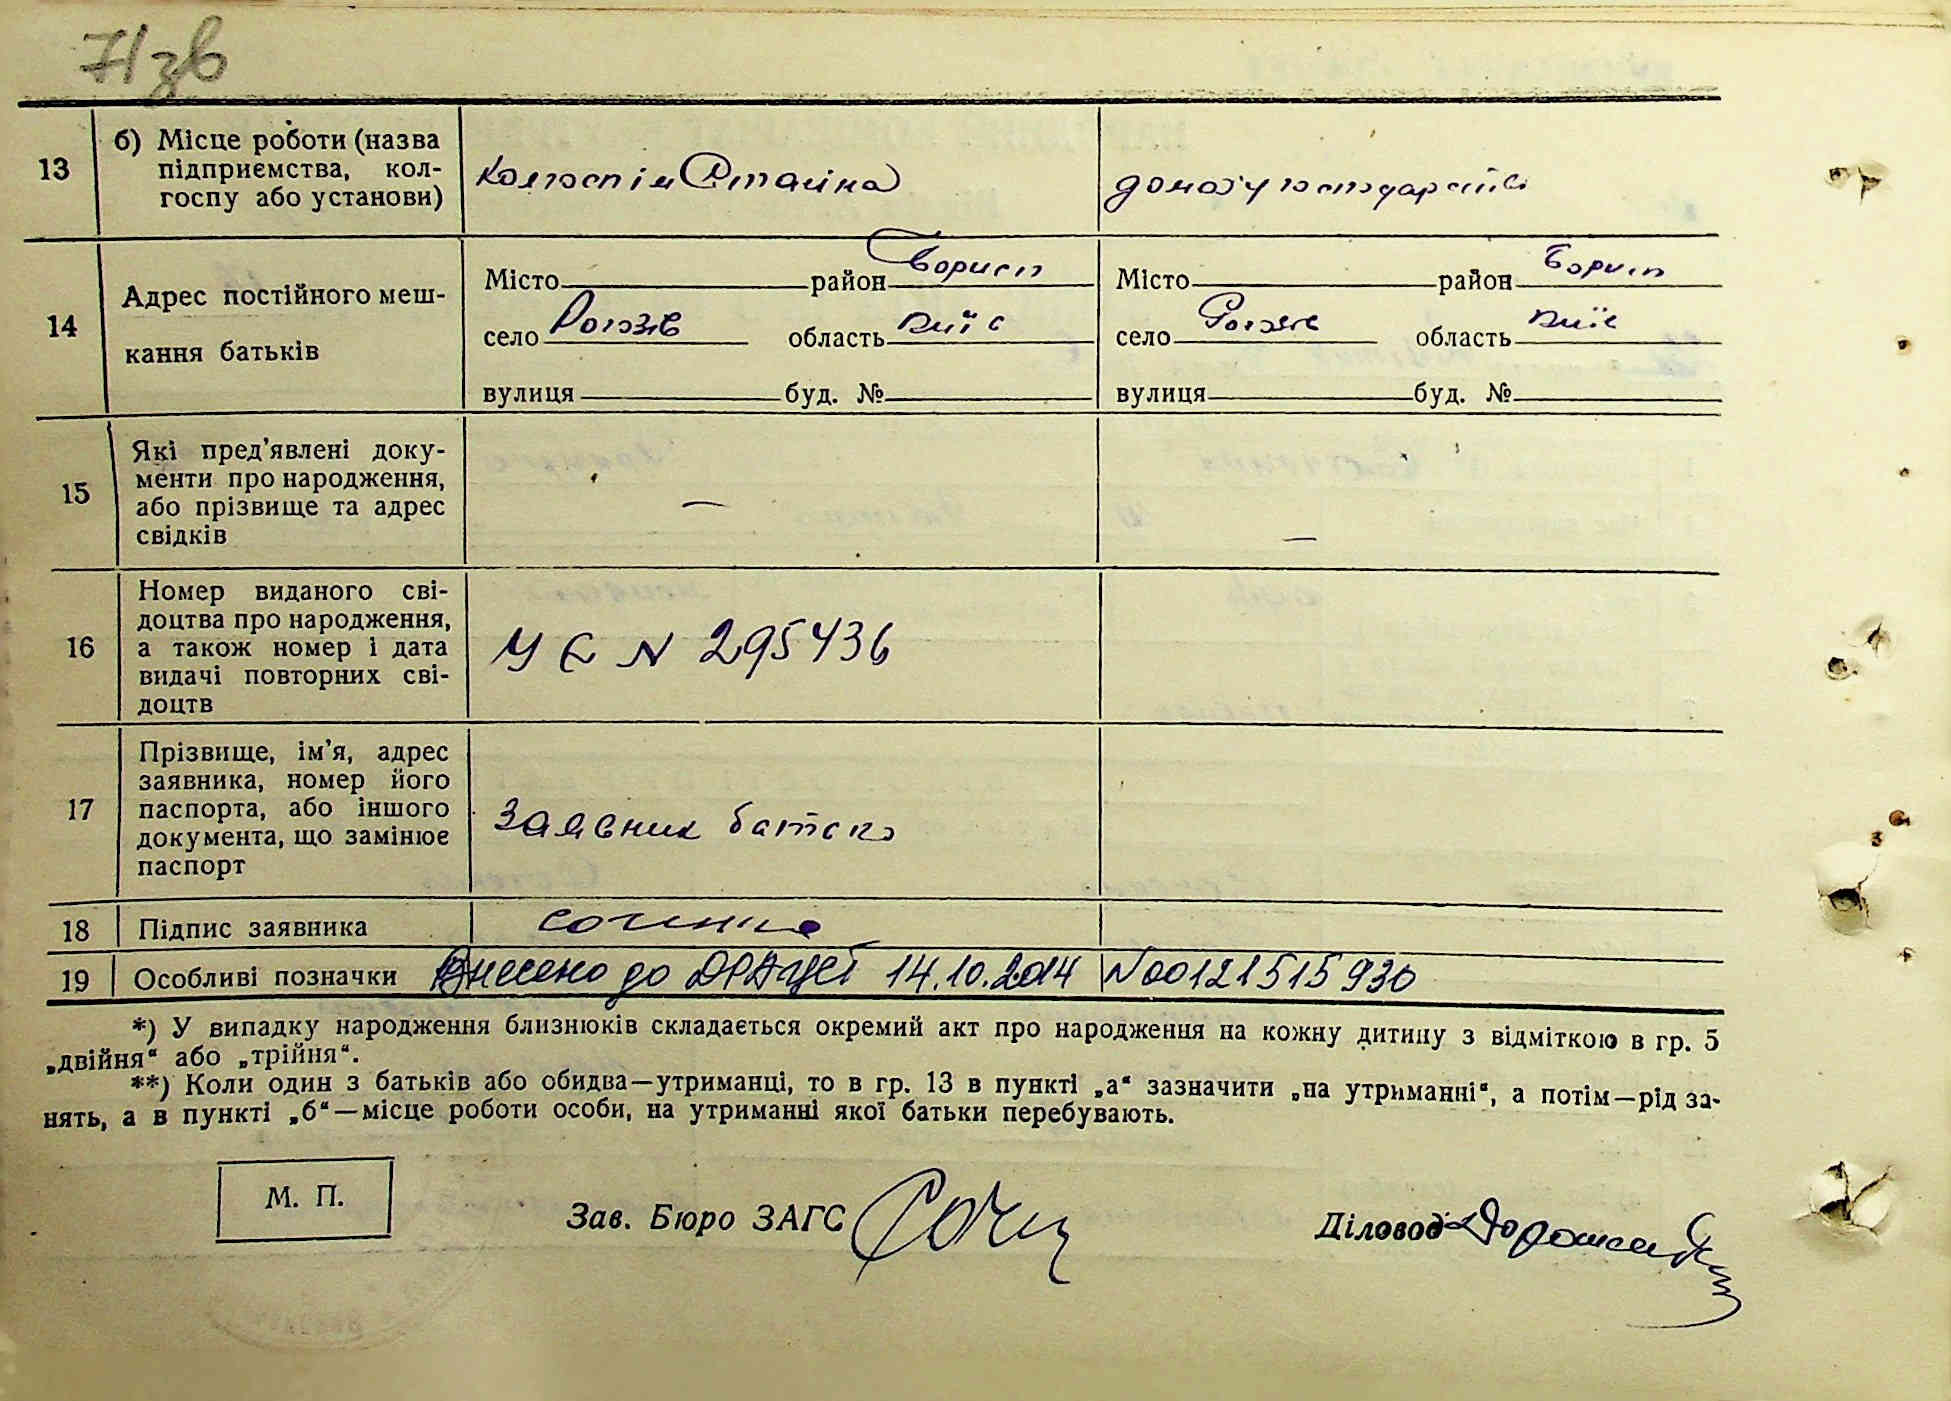 71 зв
13
б) Місце роботи (назва
підприємства, кол-
госпу або установи)
колгосп ім Сталіна
дому господарств
14
Адрес постійного меш-
кання батьків
Місто район Борисп
село Рогозів область Київ
вулиця буд. №
Місто район Борисп
село Рогозів область Київ
вулиця буд. №
15
Які пред'явлені доку-
менти про народження,
або прізвище та адрес
свідків
—
—
16
Номер виданого сві-
доцтва про народження,
а також номер і дата
видачі повторних сві-
доцтв
УЄ N 295436
17
Прізвище, ім'я, адрес
заявника, номер його
паспорта, або іншого
документа, що замінює
паспорт
Заявник батько
18
Підпис заявника
19
Особливі позначки
Внесено до ДРАЦСГ 14.10.2014 N00121515930
*) У випадку народження близнюків складається окремий акт про народження на кожну дитину з відміткою в гр. 5
„двійня“ або „трійня“.
**) Коли один з батьків або обидва—утриманці, то в гр. 13 в пункті „а“ зазначити „на утриманні“, а потім—рід за-
нять, а в пункті „б“—місце роботи особи, на утриманні якої батьки перебувають.
М. П.
Зав. Бюро ЗАГС
Діловод